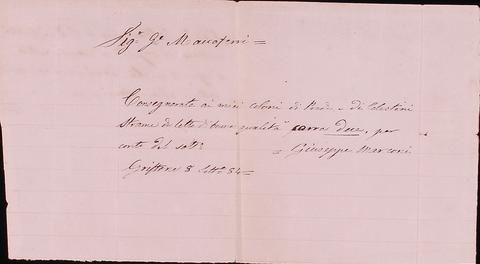 Sigr. Ge. Macaferri =
Consegnerete ai miei coloni di Prade e di Celestini
Strame da letto di buona qualità carra Dieci, per
conto del sotto = Giuseppe Marconi
Griffone 8 84 =